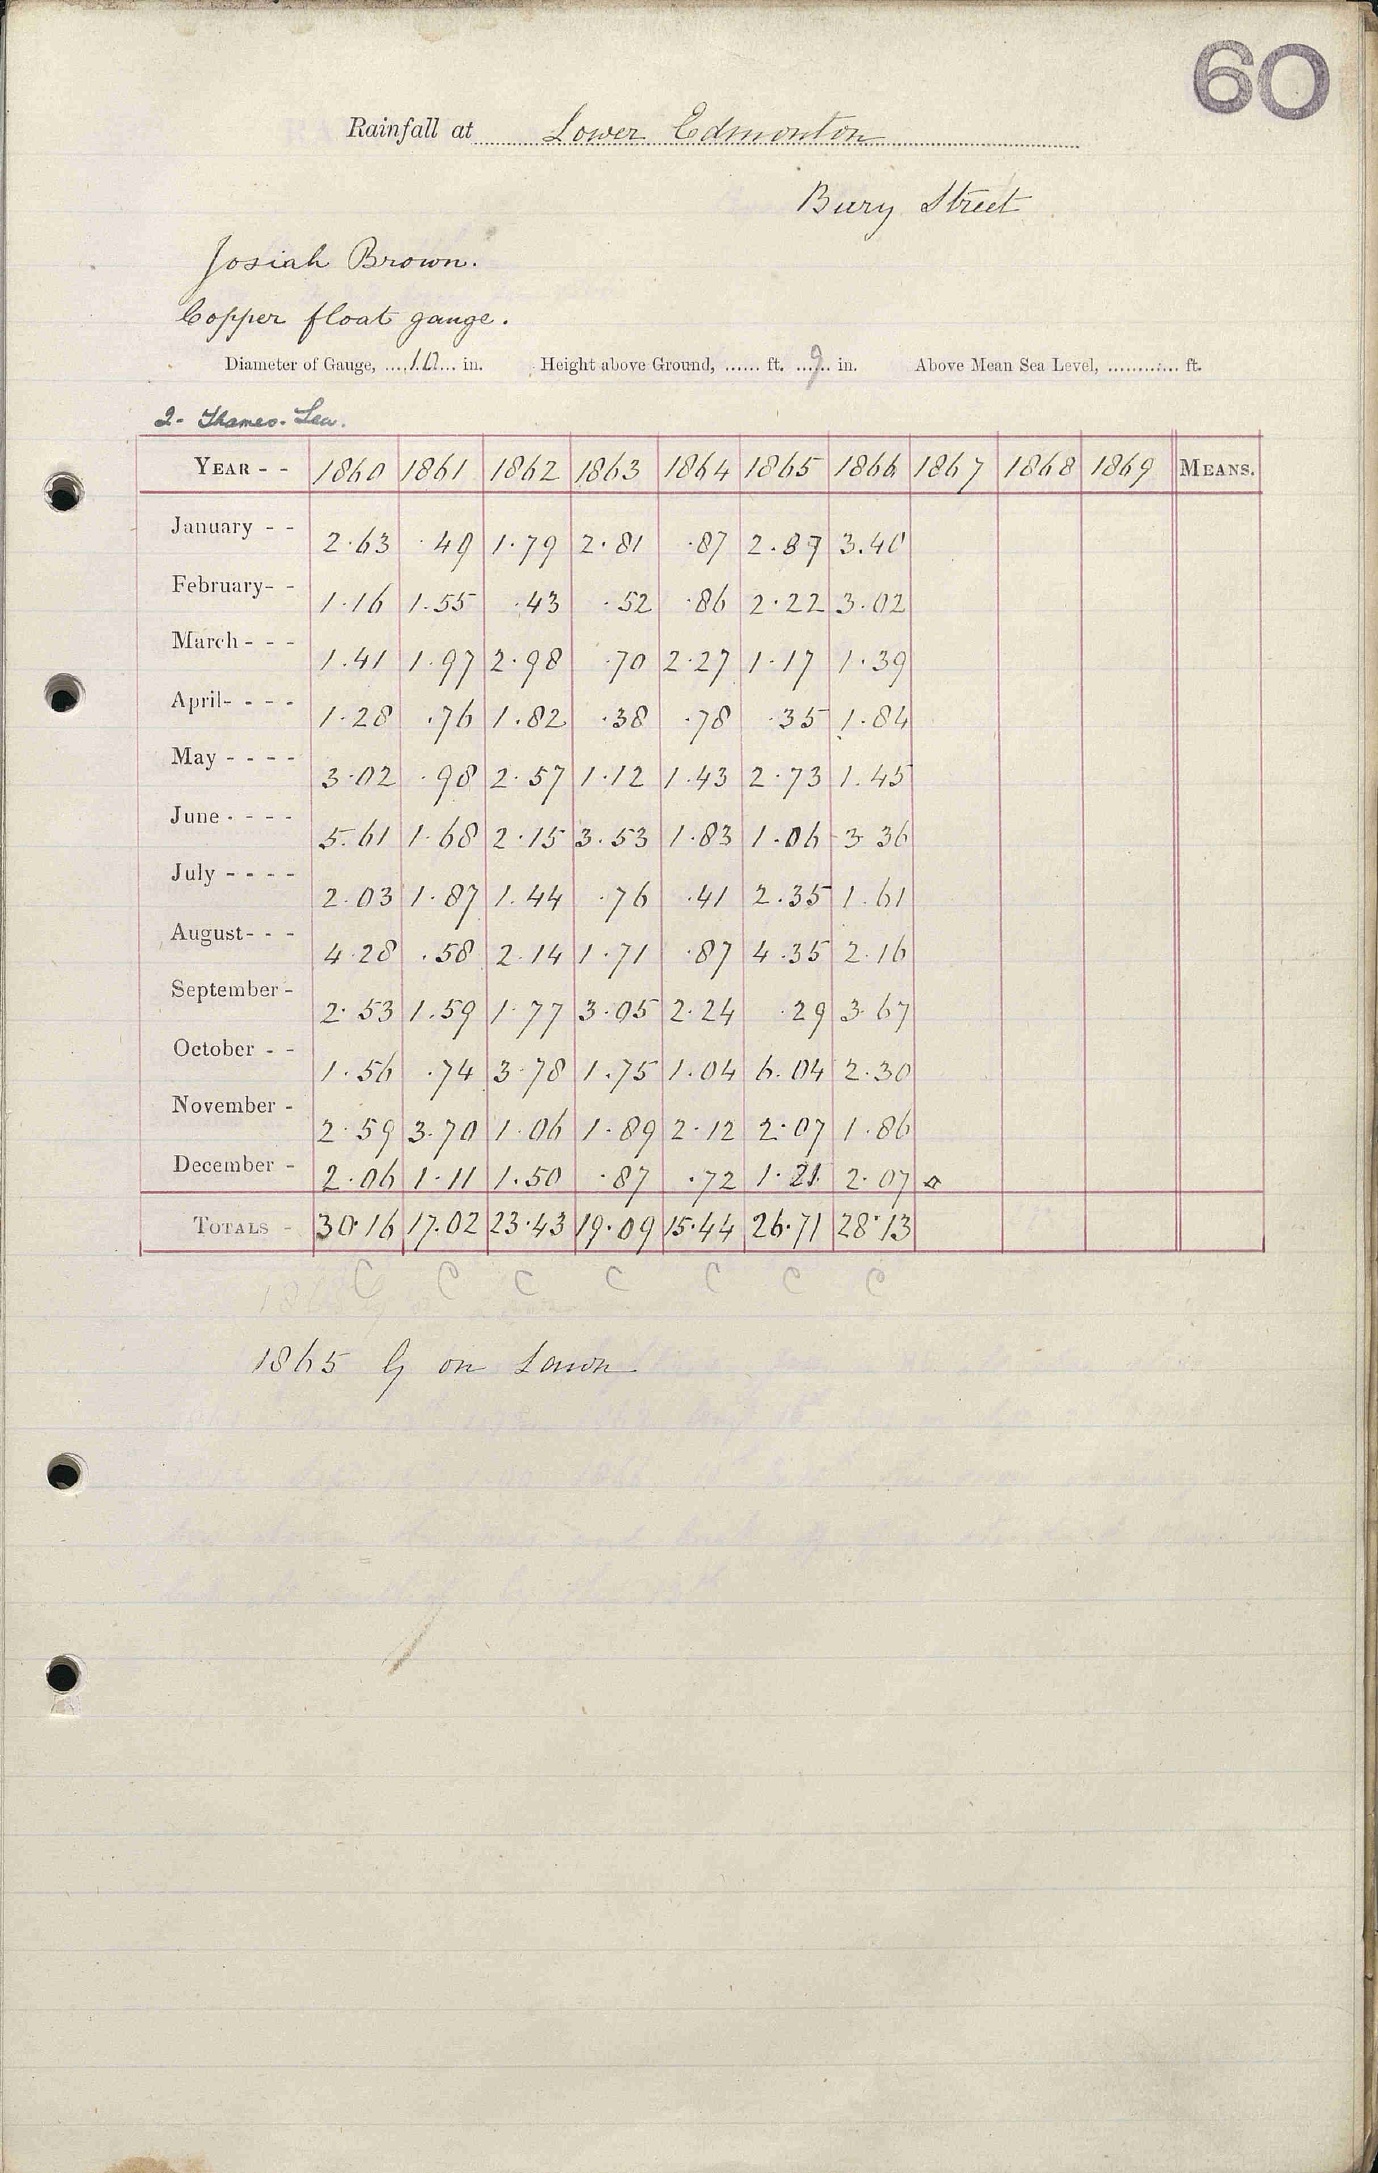 60
Rainfall at Lower Edmonton
Bury Street
Josiah Brown.
Copper float gauge.
Diameter of Gauge, 10 in. Height above Ground, ...... ft. 9 in. Above Mean Sea Level, ............ ft.
2- Thames. Lea.
YEAR - - 1860 1861 1862 1863 1864 1865 1866 1867 1868 1869 MEANS.
January - - 2.63 .49 1.79 2.81 .87 2.87 3.40
February - - 1.16 1.55 .43 .52 .86 2.22 3.02
March - - - 1.41 1.97 2.98 .70 2.27 1.17 1.39
April - - - - 1.28 .76 1.82 .38 .78 .35 1.84
May - - - - 3.02 .98 2.57 1.12 1.43 2.73 1.45
June - - - - 5.61 1.68 2.15 3.53 1.83 1.06 3.36
July - - - - 2.03 1.87 1.44 .76 .41 2.35 1.61
August - - - 4.28 .58 2.14 1.71 .87 4.35 2.16
September - 2.53 1.59 1.77 3.05 2.24 .29 3.67
October - - 1.56 .74 3.78 1.75 1.04 6.04 2.30
November - 2.59 3.70 1.06 1.89 2.12 2.07 1.86
December - 2.06 1.11 1.50 .87 .72 1.21 2.07
TOTALS - 30.16 17.02 23.43 19.09 15.44 26.71 28.13
C C C C C C C
1865 G on Lawn